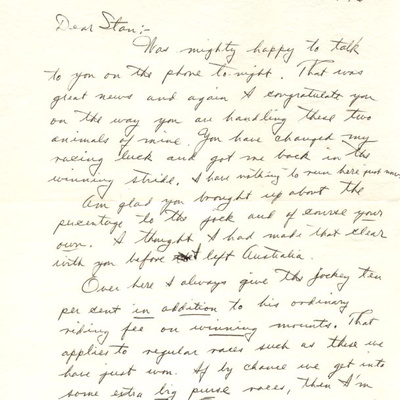 Dear Stan:-
Was mighty happy to talk
to you on the phone to-night. That was
great news and again I congratulate you
on the way you are handling these two
animals of mine. You have changed my
racing luck and got me back in the
winning stride. I have nothing to run here just now.
Am glad you brought up about the
percentage to the jock and of course your
own. I thought I had made that clear
with you before I left Australia.
Over here I always give the jockey ten
per cent in addition to his ordinary
riding fee on winning mounts. That
applies to regular races such as these we
have just won. If by chance we get into
some extra big purse races, then I'm